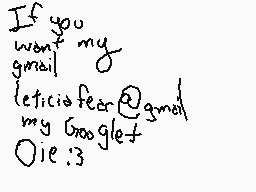 If you
want my
gmail
leticiafear@gmail
my Google+
Oie :3